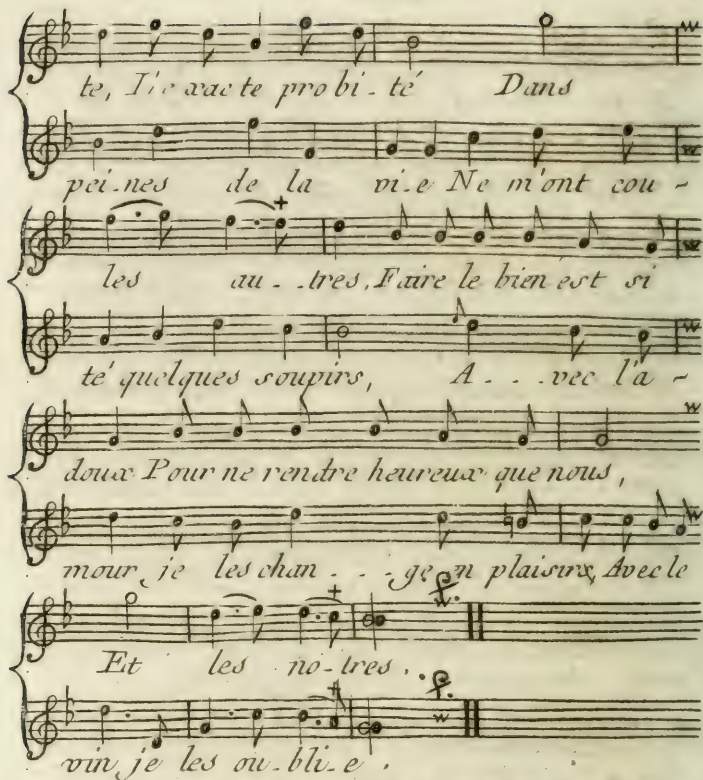 te, L'e xac te pro bi - té Dans
pei - nes de la vi - e Ne m'ont cou -
les au - - tres, Faire le bien est si
té quelques soupirs, A - - - vec l'a -
doux Pour ne rendre heureux que nous,
mour je les chan - - - ge en plaisirs, Avec le
Et les no - tres.
vin je les ou - bli - e.